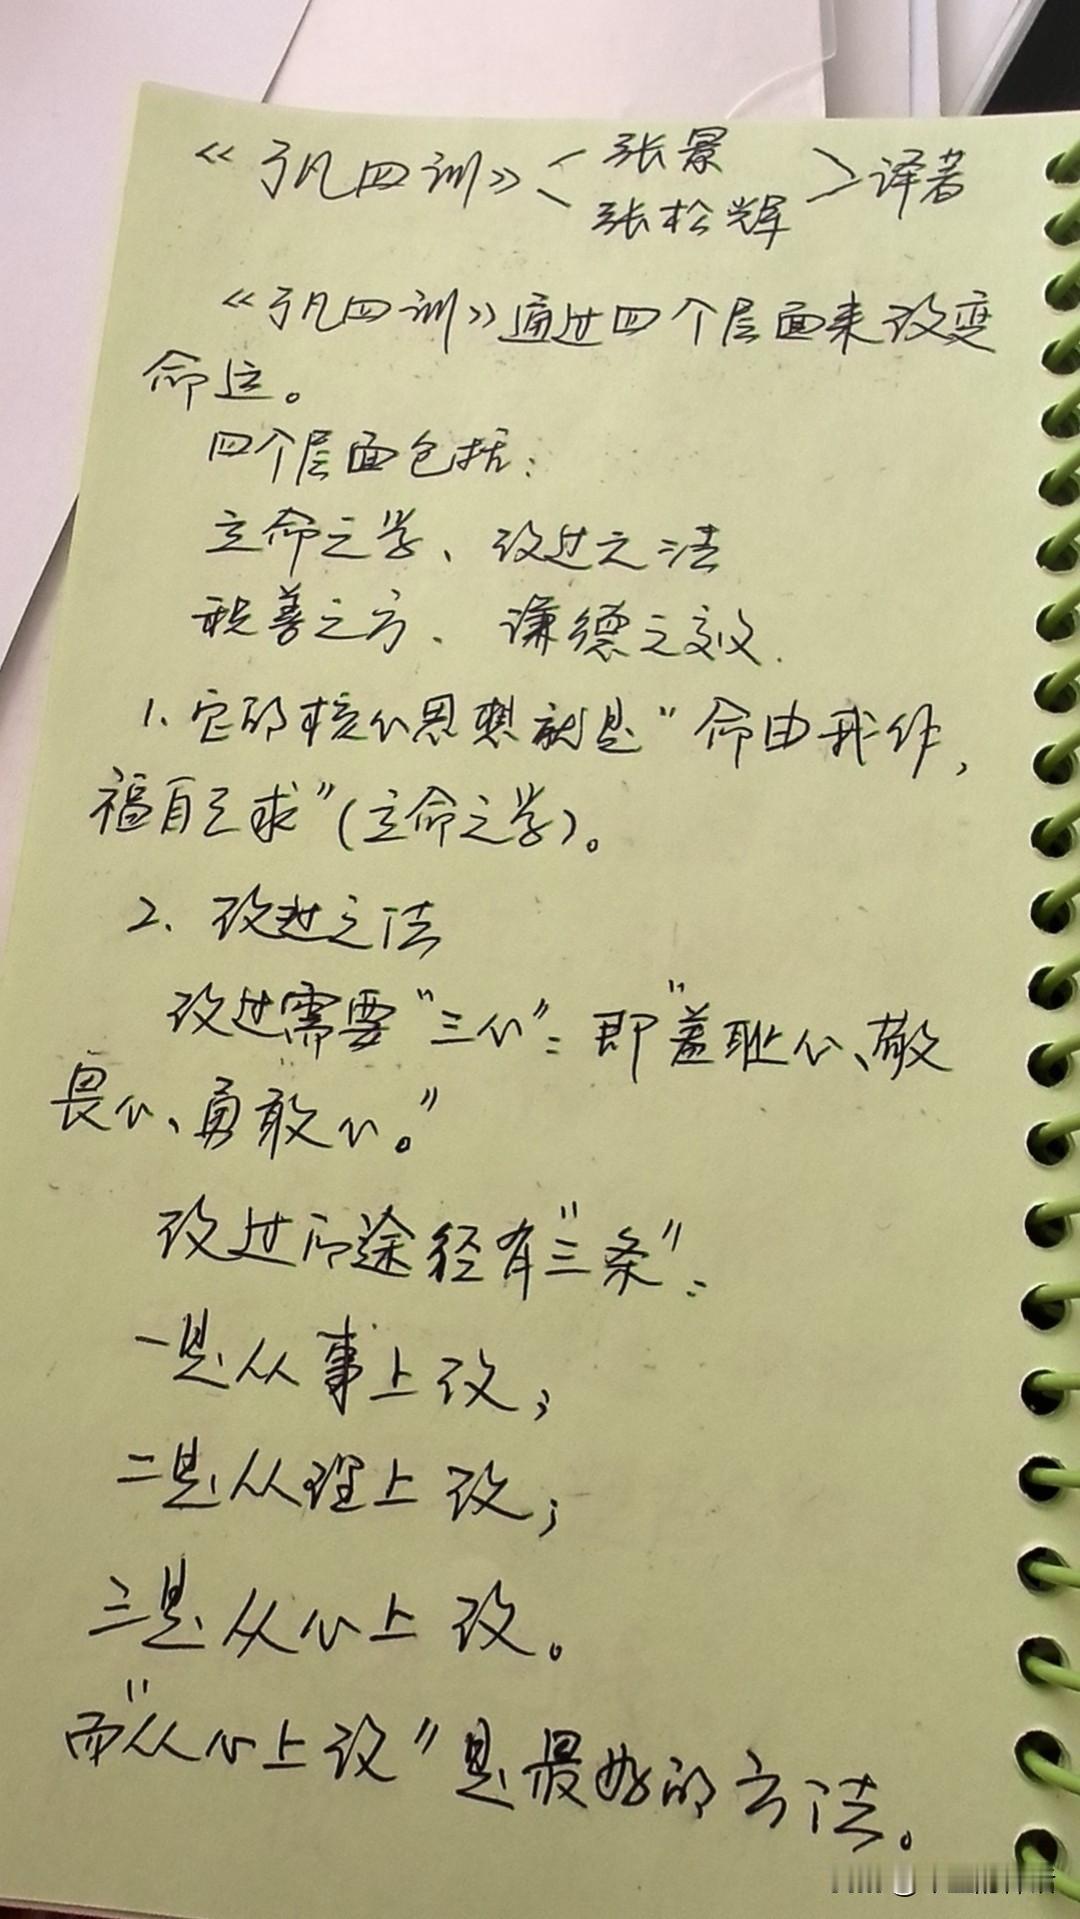 《了凡四训》<张景 张松辉>译著
《了凡四训》通过四个层面来改变
命运。
四个层面包括:
立命之学、改过之法
积善之方、谦德之效.
1、它的核心思想就是"命由我作,
福自己求"(立命之学)。
2、改过之法
改过需要"三心":即"羞耻心、敬
畏心、勇敢心。"
改过的途径有"三条":
一是从事上改;
二是从理上改;
三是从心上改。
而"从心上改"是最好的方法。